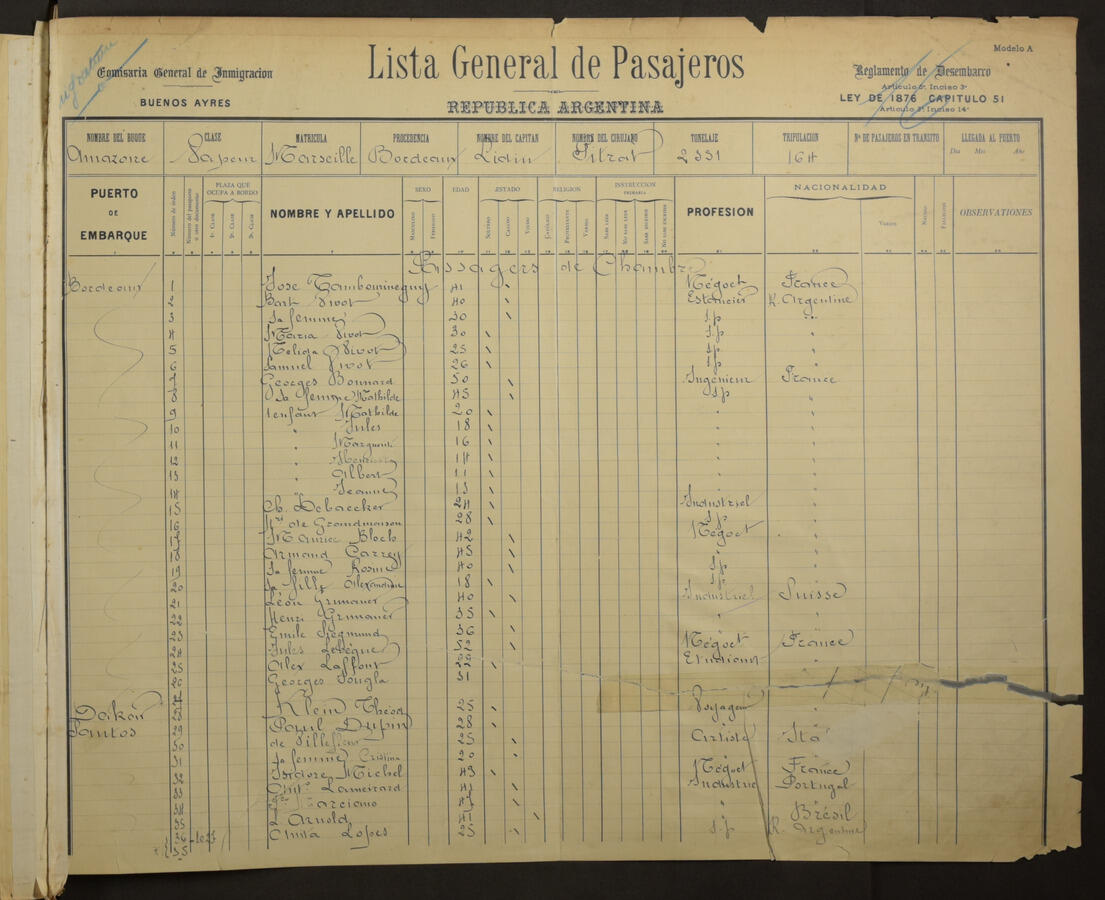 Modelo A
Comisaria General de Inmigracion
BUENOS AYRES
Lista General de Pasajeros
REPUBLICA ARGENTINA
Reglamento de Desembarco
Articulo 5º Inciso 3º
LEY DE 1876 CAPITULO 51
Articulo 3º Inciso 14º
NOMBRE DEL BUQUE CLASE MATRICULA PROCEDENCIA NOMBRE DEL CAPITAN NOMBRE DEL CIRUJANO TONELAJE TRIPULACION Nº DE PASAJEROS EN TRANSITO LLEGADA AL PUERTO
Dia Mes Año
Amazone Vapeur Marseille Bordeaux Lidin 2331 164
PUERTO DE EMBARQUE Número de órden PLAZA QUE OCUPA A BORDO NOMBRE Y APELLIDO SEXO EDAD ESTADO RELIGION INSTRUCCION PRIMARIA PROFESION NACIONALIDAD OBSERVACIONES
1ª CLASE 2ª CLASE 3ª CLASE MASCULINO FEMENINO SOLTERO CASADO VIUDO CATÓLICO PROTESTANTE VARIOS SABE LEER NO SABE LEER SABE ESCRIBIR NO SABE ESCRIBIR VARIOS
Passagers de Chambre
Bordeaux 1 Jose 41 Négoct France
2 Bart Vivot 40 Estancier R. Argentine
3 Sa femme 30 s.p "
4 Maria Vivot 30 s.p "
5 Melida Vivot 25 s.p "
6 Samuel Vivot 26 s.p "
7 Georges Bonnard 50 Ingénieur France
8 Sa femme Mathilde 45 s.p "
9 1 enfant Mathilde 20 " "
10 " Jules 18 " "
11 " 16 " "
12 " 14 " "
13 " Albert 11 " "
14 " Jeanne 13 " "
15 Ch. Debaecker 24 Industriel "
16 de Grandmaison 28 s.p "
17 Maurice Bloch 42 Négoct "
18 Armand Carrey 45 " "
19 Sa femme Rosine 40 s.p "
20 Sa fille 18 s.p "
21 Léon Grumauer 40 Industriel Suisse
22 Henri Grumauer 35 " "
23 Emile Siegmund 36 "
24 Jules Lebegue 52 Négoct France
25 Alex Laffont 22 Etudiant "
26 Georges 31
Dakar 28 Klein 25 Voyageur
Santos 29 Paul Dupin 28
30 de 25 Artiste
31 Sa femme Cristina 20
32 Isidore Michel 43 Négoct France
33 Lameirard 41 Industriel Portugal
34 Marciano "
35 L. Arnold 41 Brésil
36 Lopes 25 s.p R. Argentine